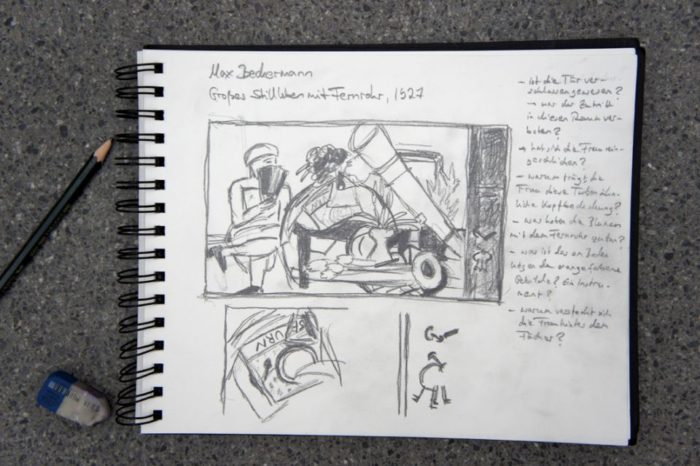 Max Beckermann
Großes Stillleben mit Fernrohr, 1927
- ist die Tür ver-
schlossen gewesen?
→ war der Zutritt
in diesen Raum ver-
boten?
→ hat sich die Frau ein-
geschlichen?
- warum trägt die
Frau diese Turban ähn-
liche Kopfbedeckung?
- was haben die Blumen
mit dem Fernrohr zu tun?
- was ist das am Boden
für ein orangefarbene
Gebilde? Ein Instru-
ment?
- warum versteckt sich
die Frau hinter dem
Fächer?
SATURN